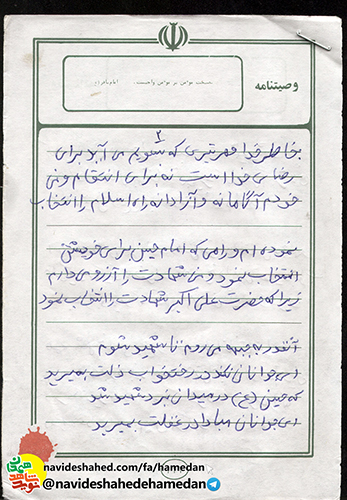 وصیتنامه
وصیت مؤمن بر مؤمن واجبست
۲
بخاطر خدا هر تیری که بسویم می آید برای
رضای خدا است نه برای انتقام و من
خودم آگاهانه و آزادانه راه اسلام را انتخاب
نموده ام و راهی که امام حسین برای خویشتن
انتخاب نمود و من شهادت را آرزو می دارم
زیرا که حضرت علی اکبر شهادت را انتخاب نمود
آنقدر به جبهه می روم تا شهید شوم
ای جوانان نکند در رختخواب ذلت بمیرید
که حسین (ع) در میدان نبرد شهید شد
ای جوانان مبادا در غفلت بمیرید
navideshahed.com/fa/hamedan
@navideshahedehamedan